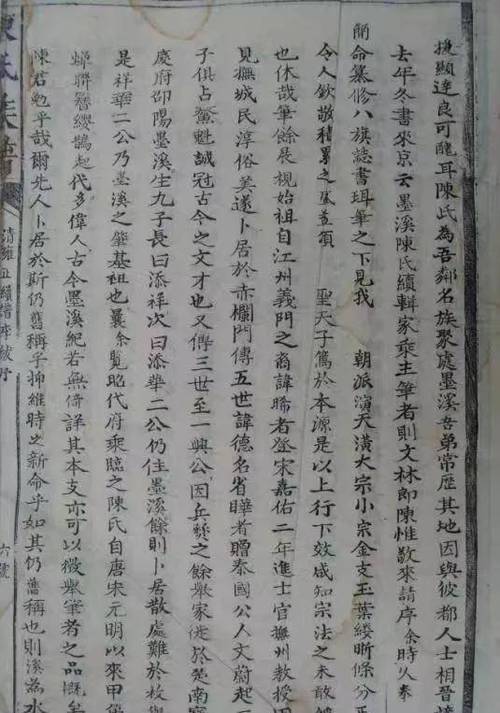 擴顯達良可醜耳陳氏為吾鄰名族聚處墨溪吾弟常歷其地因與彼都人士相晉接
去年冬書來京云墨溪陳氏續輯家乘主筆者則文林即陳惟敬來請序余時久奉
簡命纂修八旗誌書珥筆之下見我 朝派演天潢大宗小宗金支玉葉縷晰條分
令人欽敬積累之 聖天子篤於本源是以上行下效咸知宗法之未敢
也休哉筆餘展視始祖自江州義門之裔諱晞者登宋嘉佑二年進士官撫州教授因
見撫城民淳俗美遂卜居於赤欄門傳五世諱德名省曄者贈秦國公人文蔚起
子俱占鰲魁誠冠古今之文才也又傳三世至一興公因兵燹之餘舉家徙於楚南
慶府邵陽墨溪生九子長曰添祥次曰添華二公仍住墨溪餘則卜居散處難於枚舉
是祥華二公乃墨溪之肇基祖也曩余覽昭代府乘臨之陳氏自唐宋元明以來甲
蟬聯簪纓鵲起代多偉人古今墨溪紀若無倚詳其本支亦可以概舉筆者之品慨矣
陳君勉乎哉爾先人卜居於斯仍舊稱乎抑維時之新命乎如其仍舊稱也則溪為水
陳氏族譜
清雍正續譜序
六號